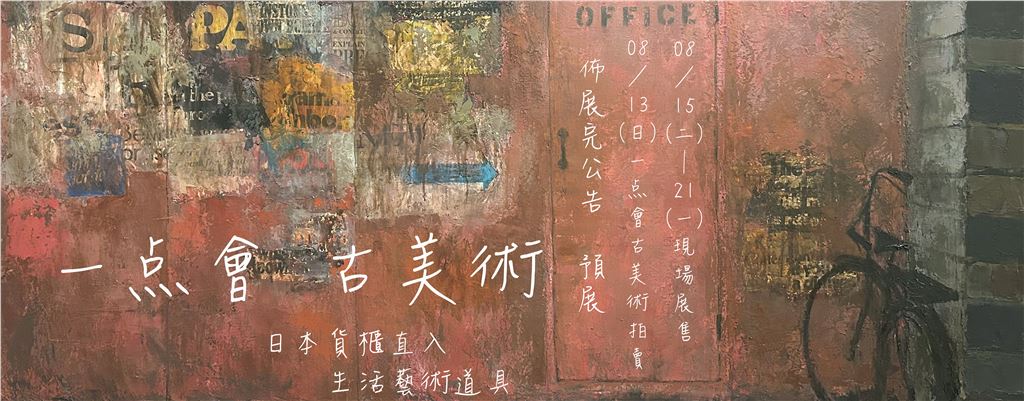 OFFICE
08/15(二)—21(一)現場展售
08/13(日)一点會古美術拍賣
佈展完公告 預展
一点會 古美術
日本貨櫃直入
生活藝術道具
EXPLAIN
The